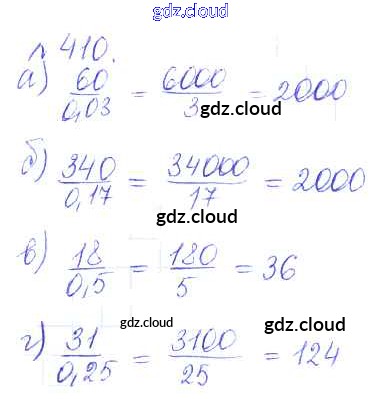 gdz.cloud
№ 410.
а) 60/0,03 = 6000/3 = 2000
gdz.cloud
б) 340/0,17 = 34000/17 = 2000
gdz.cloud
в) 18/0,5 = 180/5 = 36
gdz.cloud gdz.cloud
г) 31/0,25 = 3100/25 = 124